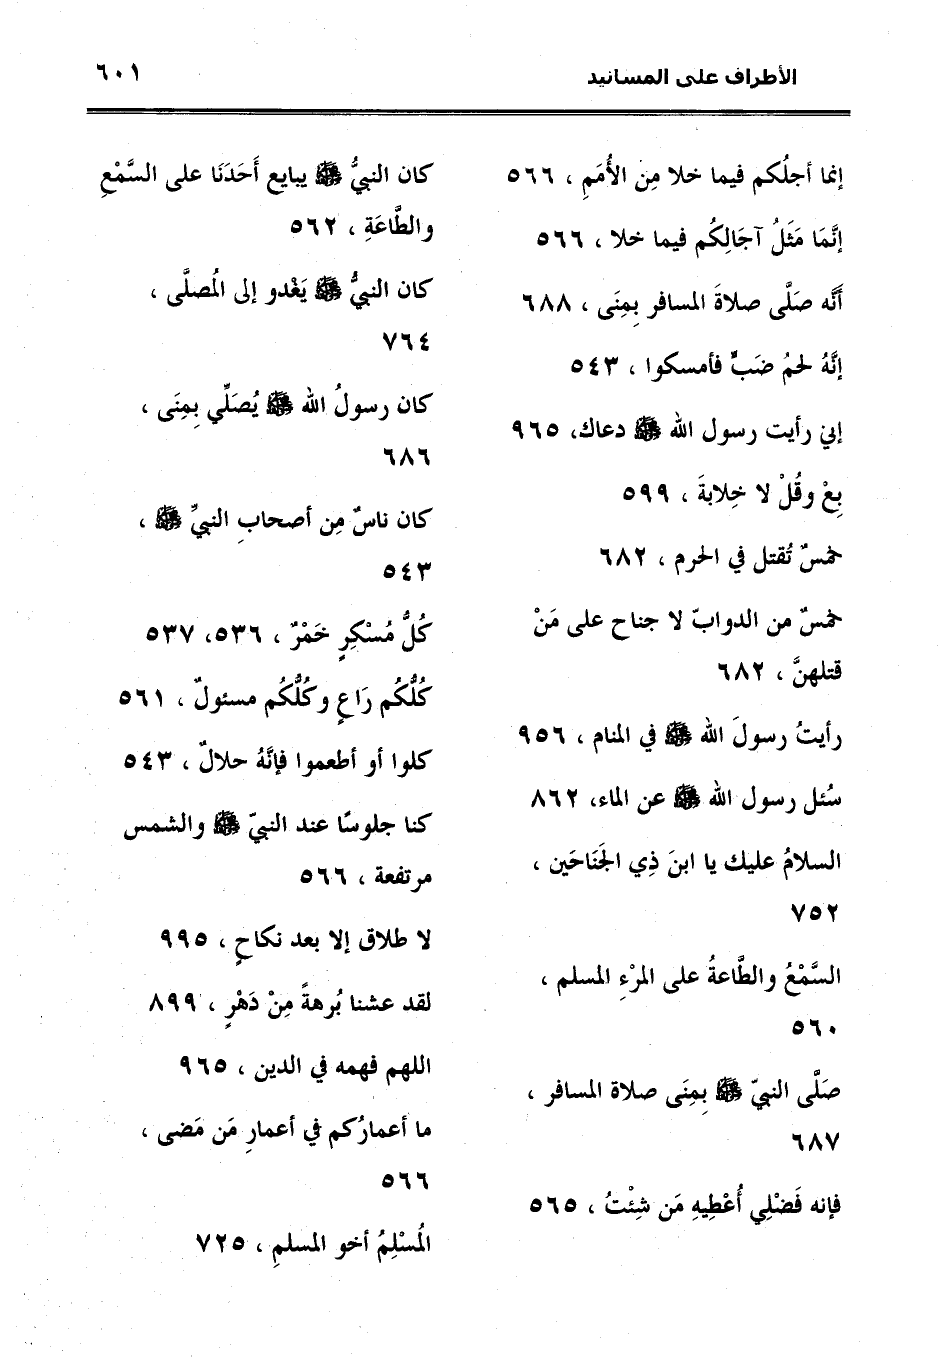 الأطراف على المسانيد
٦٠١
إنما أجلُكم فيما خلا مِن الأُمَمِ ، ٥٦٦
إنَّمَا مَثَلُ آجَالِكُم فيما خلا ، ٥٦٦
أنَّه صَلَّى صلاةَ المسافر بِمِنَى ، ٦٨٨
إنَّهُ لحمُ ضَبٍّ فأمسكوا ، ٥٤٣
إني رأيت رسول الله ﷺ دعاك، ٩٦٥
بِعْ وقُلْ لا خِلابةَ ، ٥٩٩
خمسٌ تُقتل في الحرم ، ٦٨٢
خمسٌ من الدوابّ لا جناح على مَنْ
قتلهنَّ ، ٦٨٢
رأيتُ رسولَ الله ﷺ في المنام ، ٩٥٦
سُئل رسول الله ﷺ عن الماء، ٨٦٢
السلامُ عليك يا ابنَ ذِي الجَنَاحَين ،
٧٥٢
السَّمْعُ والطَّاعةُ على المرْءِ المسلم ،
٥٦٠
صَلَّى النبيّ ﷺ بِمِنَى صلاة المسافر ،
٦٨٧
فإنه فَضْلِي أُعْطِيهِ مَن شِئْتُ ، ٥٦٥
كان النبيُّ ﷺ يبايع أَحَدَنَا على السَّمْعِ
والطَّاعَةِ ، ٥٦٢
كان النبيُّ ﷺ يَغْدو إلى المُصلَّى ،
٧٦٤
كان رسولُ الله ﷺ يُصَلِّي بِمِنَى ،
٦٨٦
كان ناسٌ مِن أصحابِ النبيِّ ﷺ ،
٥٤٣
كُلُّ مُسْكِرٍ خَمْرٌ ، ٥٣٦، ٥٣٧
كُلُّكُم رَاعٍ وكُلُّكُم مسئولٌ ، ٥٦١
كلوا أو أطعموا فإنَّهُ حلالٌ ، ٥٤٣
كنا جلوسًا عند النبيّ ﷺ والشمس
مرتفعة ، ٥٦٦
لا طلاق إلا بعد نكاحٍ ، ٩٩٥
لقد عشنا بُرهةً مِنْ دَهْرٍ ، ٨٩٩
اللهم فهمه في الدين ، ٩٦٥
ما أعمارُكم في أعمارِ مَن مَضى ،
٥٦٦
المُسْلِمُ أخو المسلمِ ، ٧٢٥